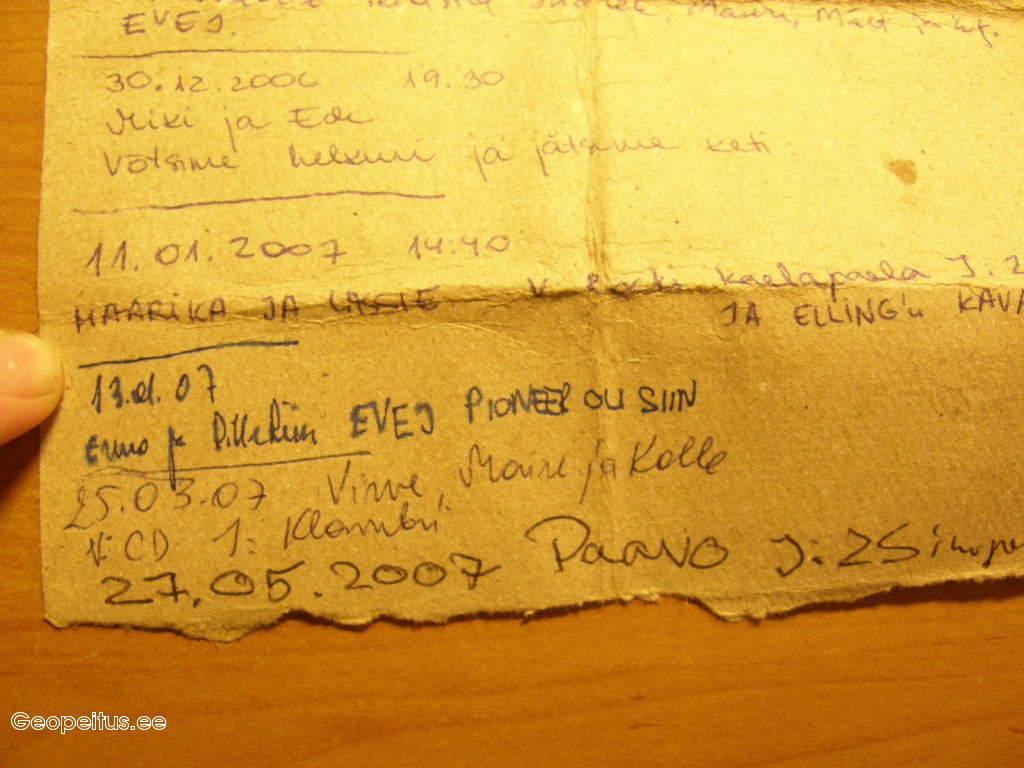 EVEJ.
30.12.2006 19.30
Miki ja Ede
Võtsime helkuri ja jätsime keti
11.01.2007 14.40
HAARIKA JA LASSE V: Kaelapaela J: 2
JA ELLING'u KAVA
13.01.07
Enno ja EVEJ PIONEER OLI SIIN
25.03.07 Virve, Maire ja Kalle
V: CD J: Klambri
27.05.2007 Paavo J: 25
Geopeitus.ee